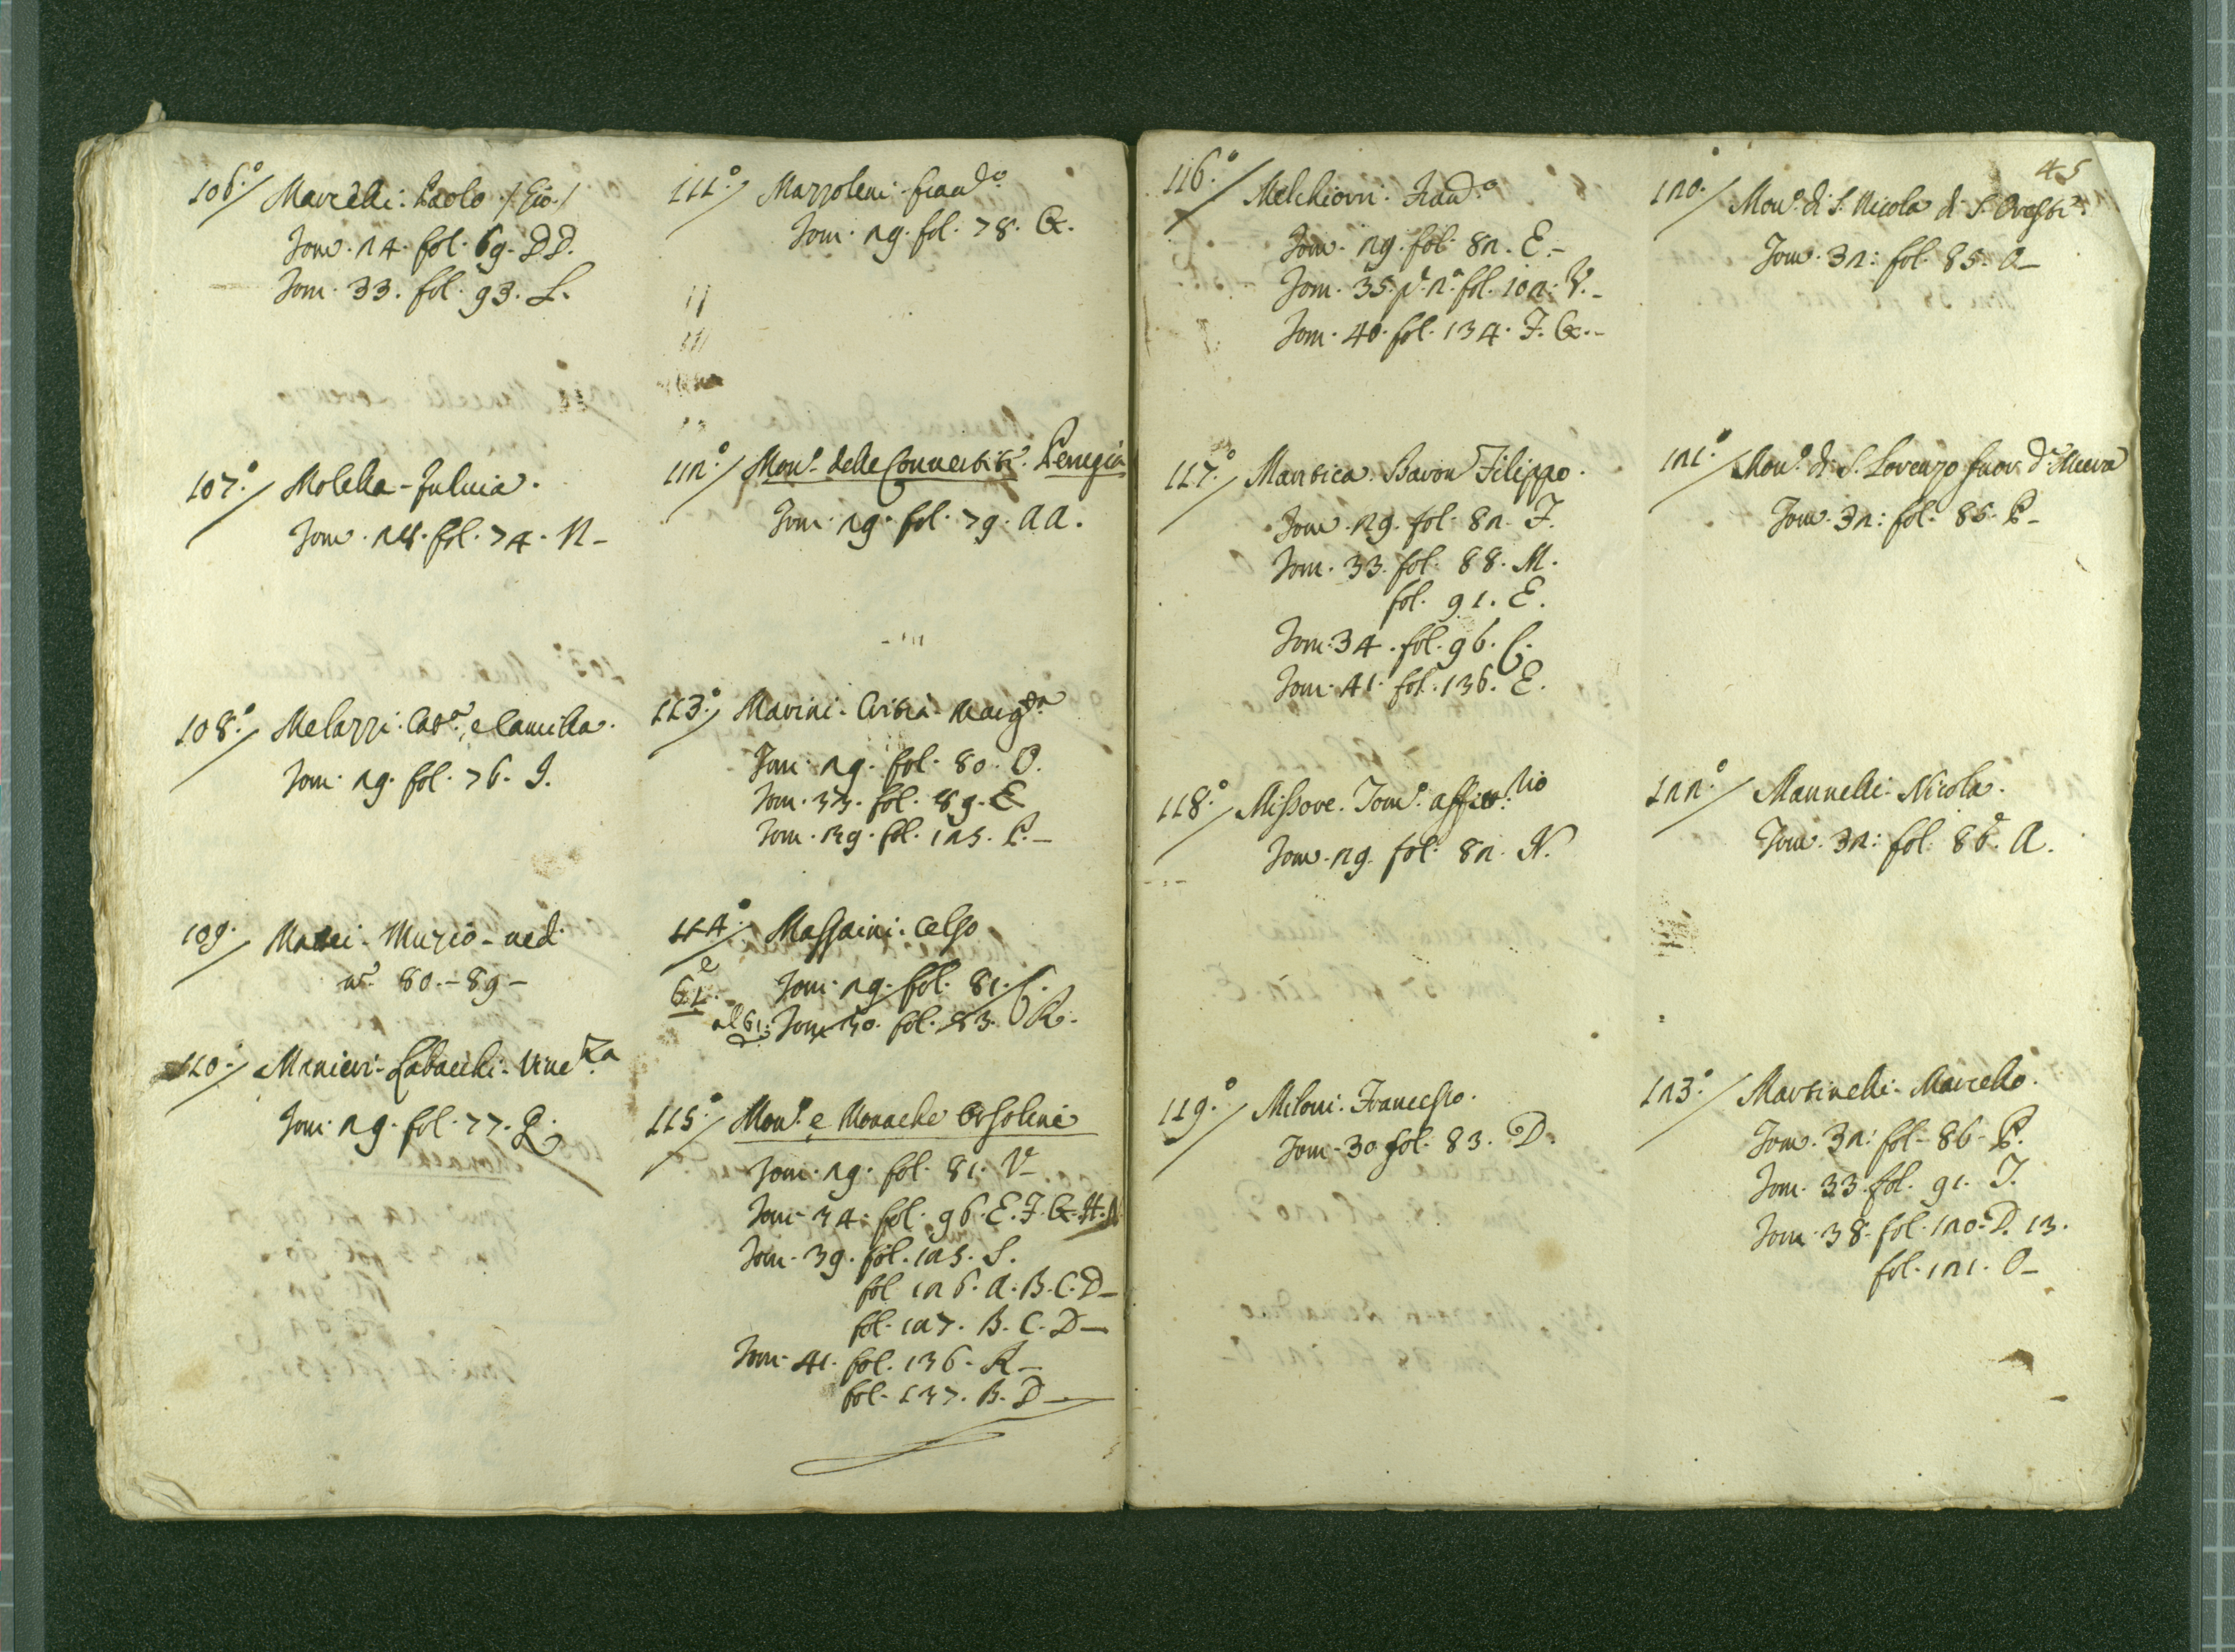 106.° Marcelli: Paolo /Gio:/
Tom. 24. fol. 69. DD.
Tom. 33. fol. 93. L.
107.° Molella - Fulvia.
Tom. 28. fol. 74. N -
108.° Melazzi: Cat.ª, e Camilla.
Tom. 29. fol. 76. I.
109. Mattei - Muzio - ved.
n.° 80. - 89 -
110.° Manieri - Labacchi - Vinc.za
Tom. 29. fol. 77. Q.
111.° Mazzoleni - Fran.do
Tom. 29. fol. 78. G.
112.° Mon.° delle Convertite. Perugia
Tom. 29. fol. 79. AA.
113.° Marini - Cristia - Marg.ta
Tom. 29. fol. 80. O.
Tom. 33. fol. 89. E
Tom. 39. fol. 125. P. -
114.° Massaini: Celso
e 61. Tom. 29. fol. 81. C.
al 61. Tom. 30. fol. 83. R.
115.° Mon.° e Monache Orsoline
Tom. 29. fol. 81. V -
Tom. 34. fol. 96. E. F. G. H. N
Tom. 39. fol. 125. S.
fol. 126. A. B. C. D -
fol. 127. B. C. D -
Tom. 41. fol. 136. R -
fol. 137. B. D -
45
116.° Melchiorri: Fran.do
Tom. 29. fol. 82. E. -
Tom. 35. p. 2.ª fol. 102. V. -
Tom. 40. fol. 134. F. G. -
117.° Mantica. Baron Filippo.
Tom. 29. fol. 82. F.
Tom. 33. fol. 88. M.
fol. 91. E.
Tom. 34. fol. 96. C.
Tom. 41. fol. 136. E.
118.° Missore. Tom.°
Tom. 29. fol. 82. N.
119.° Miloni. Francesco.
Tom. 30 fol. 83. D.
120.° Mon.° di S. Nicola di S. Oreste.
Tom. 32: fol. 85. O -
121.° Mon.° di S. Lorenzo fuor. d.e Mura
Tom. 32: fol. 85. P -
122.° Mannelli: Nicola.
Tom. 32: fol. 86. A.
123.° Martinelli: Marcello.
Tom. 32: fol. 86. P.
Tom. 33. fol. 91. I.
Tom. 38. fol. 120. D. 13.
fol. 121. O -